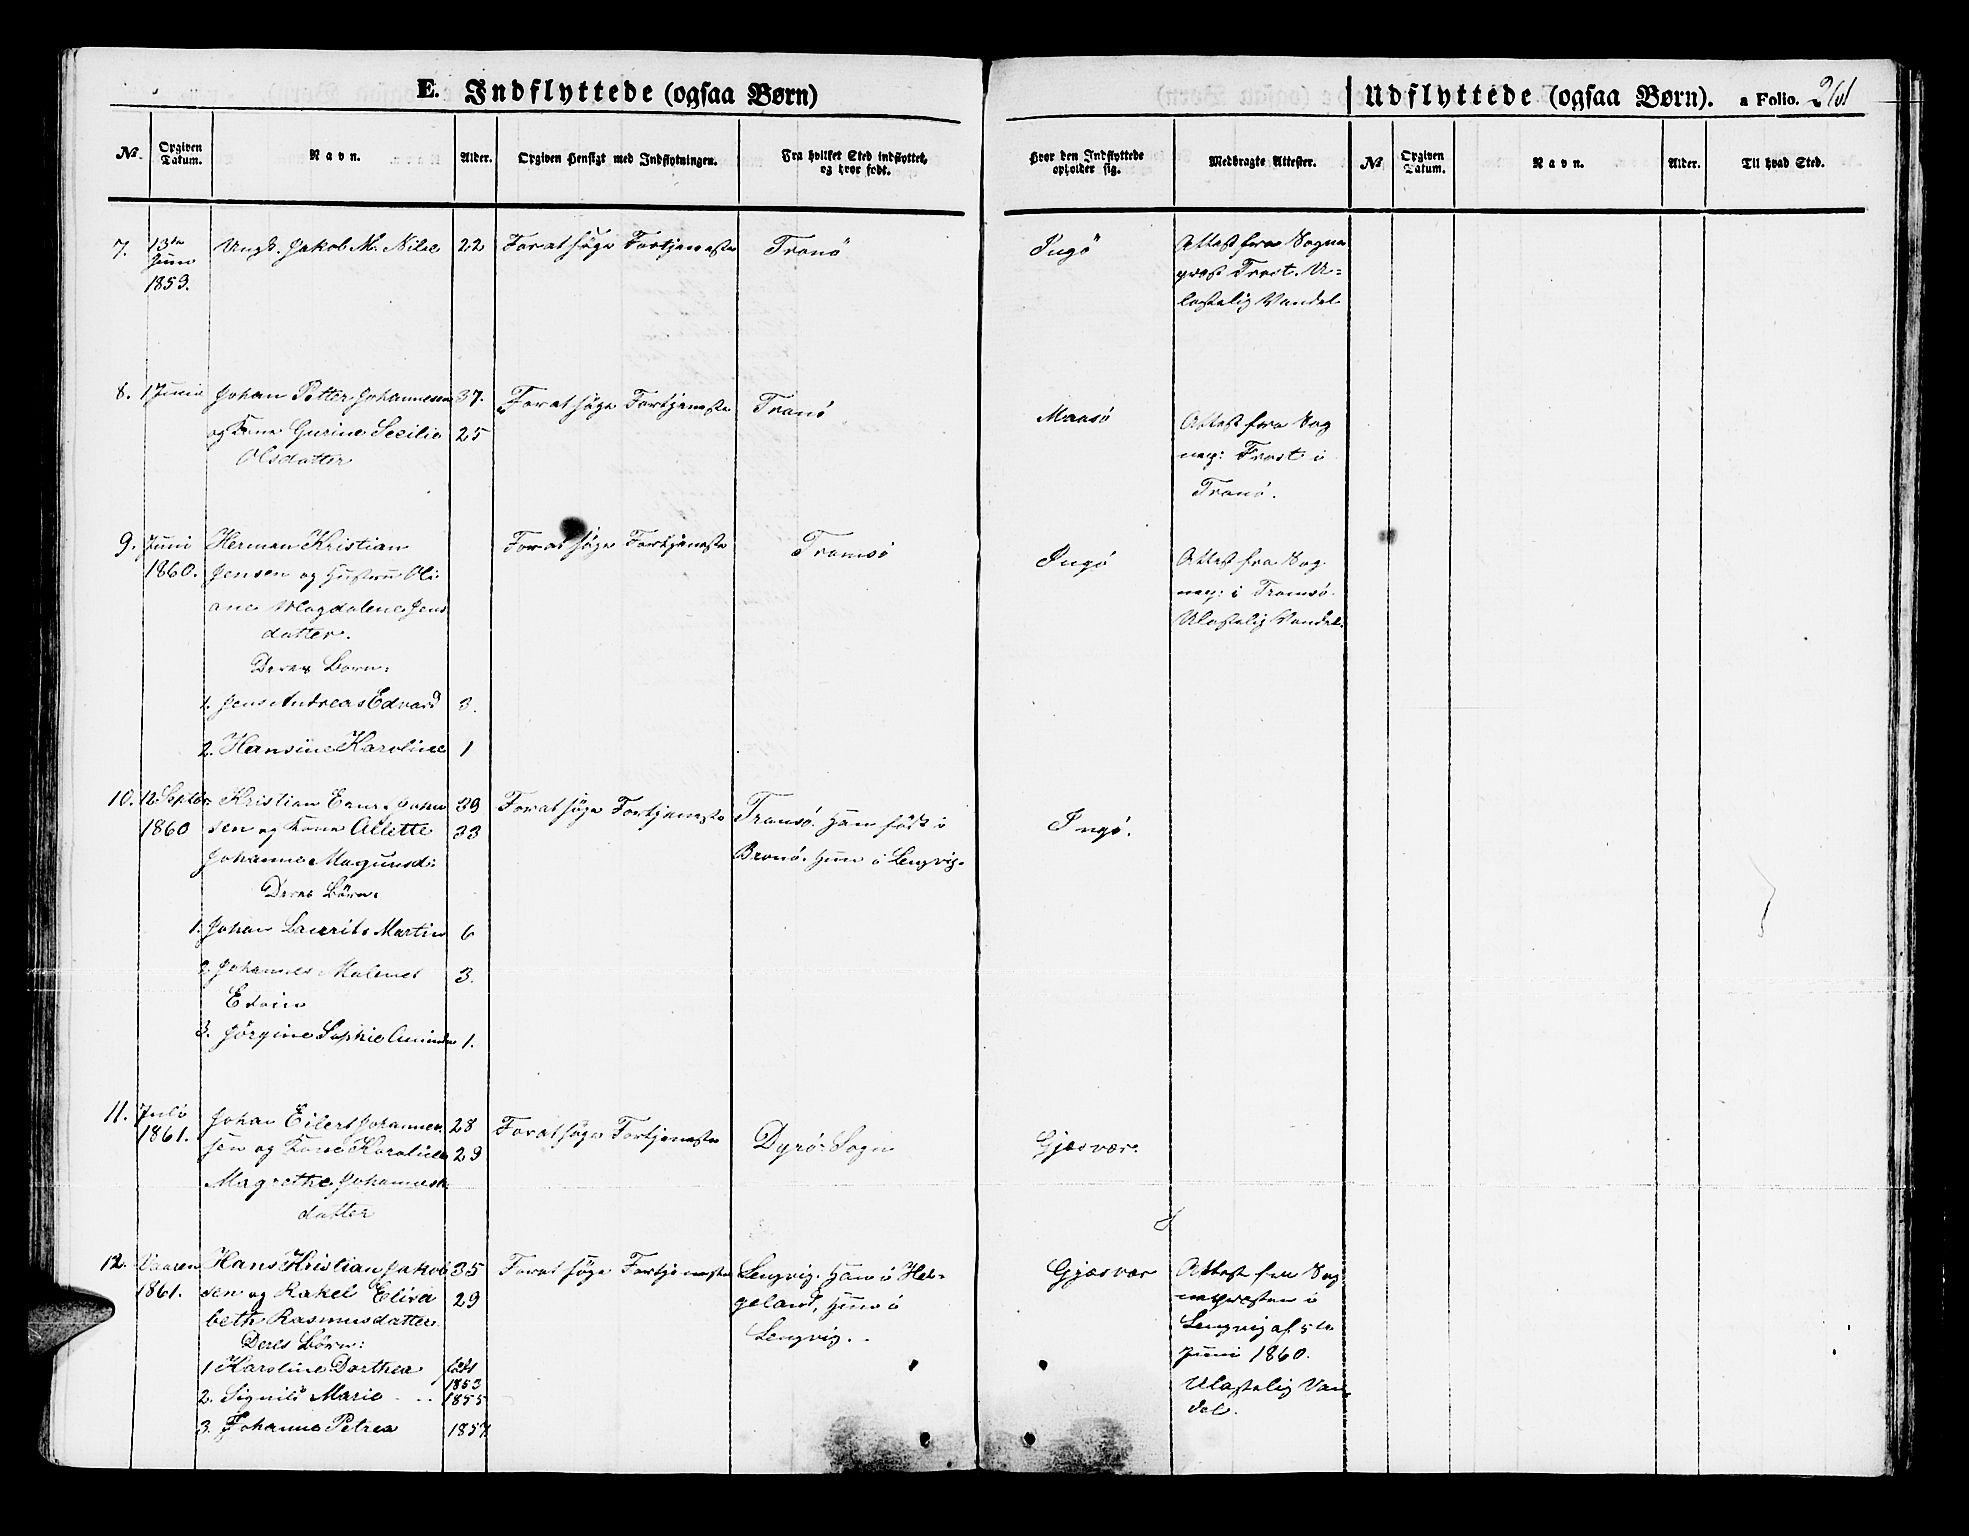 E. Indflyttede (ogsaa Børn)
Udflyttede (ogsaa Børn). a Folio. 261
№.
Opgiven Datum.
Navn.
Alder.
Opgiven Hensigt med Indflytningen.
Fra hvilket Sted indflyttet, og hvor født.
Hvor den Indflyttede opholder sig.
Medbragte Attester.
№
Opgiven Datum.
Navn.
Alder.
Til hvad Sted.
7. 13de Ungk. Jakob M. Nilse 22 For at søge Fortjeneste Tranö Ingö Attest fra Sogne
Juni
1859.
prest Frost. U-
lastelig Vandel
8. 1 Juni Johan Petter Johannesen 37. For at søge Fortjeneste Tranö Maasö Attest fra Sog
og Kone Gurine Secilie 25
nep: Frost i
Olsdatter
Tranö.
9. Juni Herman Kristian For at søge Fortjeneste Tromsö Ingö Attest fra Sog
1860. Jensen og Hustru Oli
nep: i Tromsö.
ane Magdalene Jens
Ulastelig Vandel.
datter.
Deres Børn:
1. Jens Andreas Edvard 3.
2. Hansine Karoline 1
10. 12 Septbr Kristian 29 For at søge Fortjeneste Tromsö. Han født i Ingö.
1860 sen og Kone Allette 33
Bronö. Hun i Lengvig.
Johanne Magnusd:
Deres Børn:
1. Johan Laurits Martin 6
2. Johannes 3.
Edvin
3. Jörgine Sophie 1.
11. Juli Johan Eilert Johannes 28 For at søge Fortjeneste Dyrö Sogn Gjæsvær.
1861. sen og Kone Karoline 29
Magrethe Johannes
datter
12. Vaaren Hans Kristian Jakob 35 For at søge Fortjeneste Lengvig. Han i Hel- Gjæsvær Attest fra Sog
1861. sen og Rakel Elisa 29 geland, Hun i
nepresten i
beth Rasmusdatter
Lengvig.
Lengvig af 5te
Deres Børn:
Juni 1860.
1 Karoline Dorthea født 1853
Ulastelig Van
2. Signild Marie 1855
del.
3. Johanna Petrea 1857